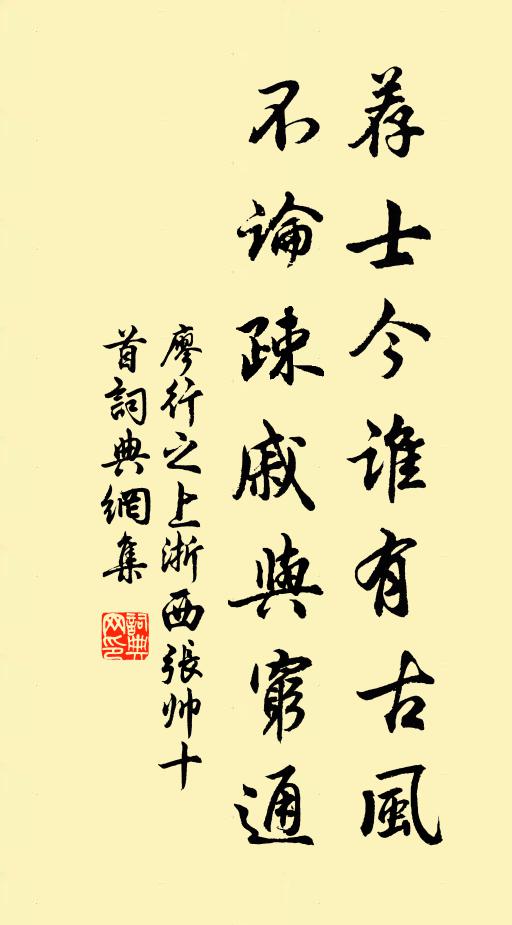 荐士今谁有古風
不論疎戚與窮通
廖行之上浙西張帅十
首詞典網集
詞典网印